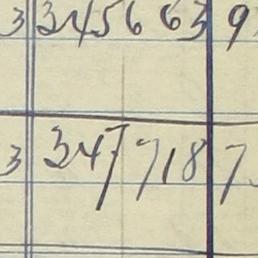 3 3245663 9
3 3247718 7